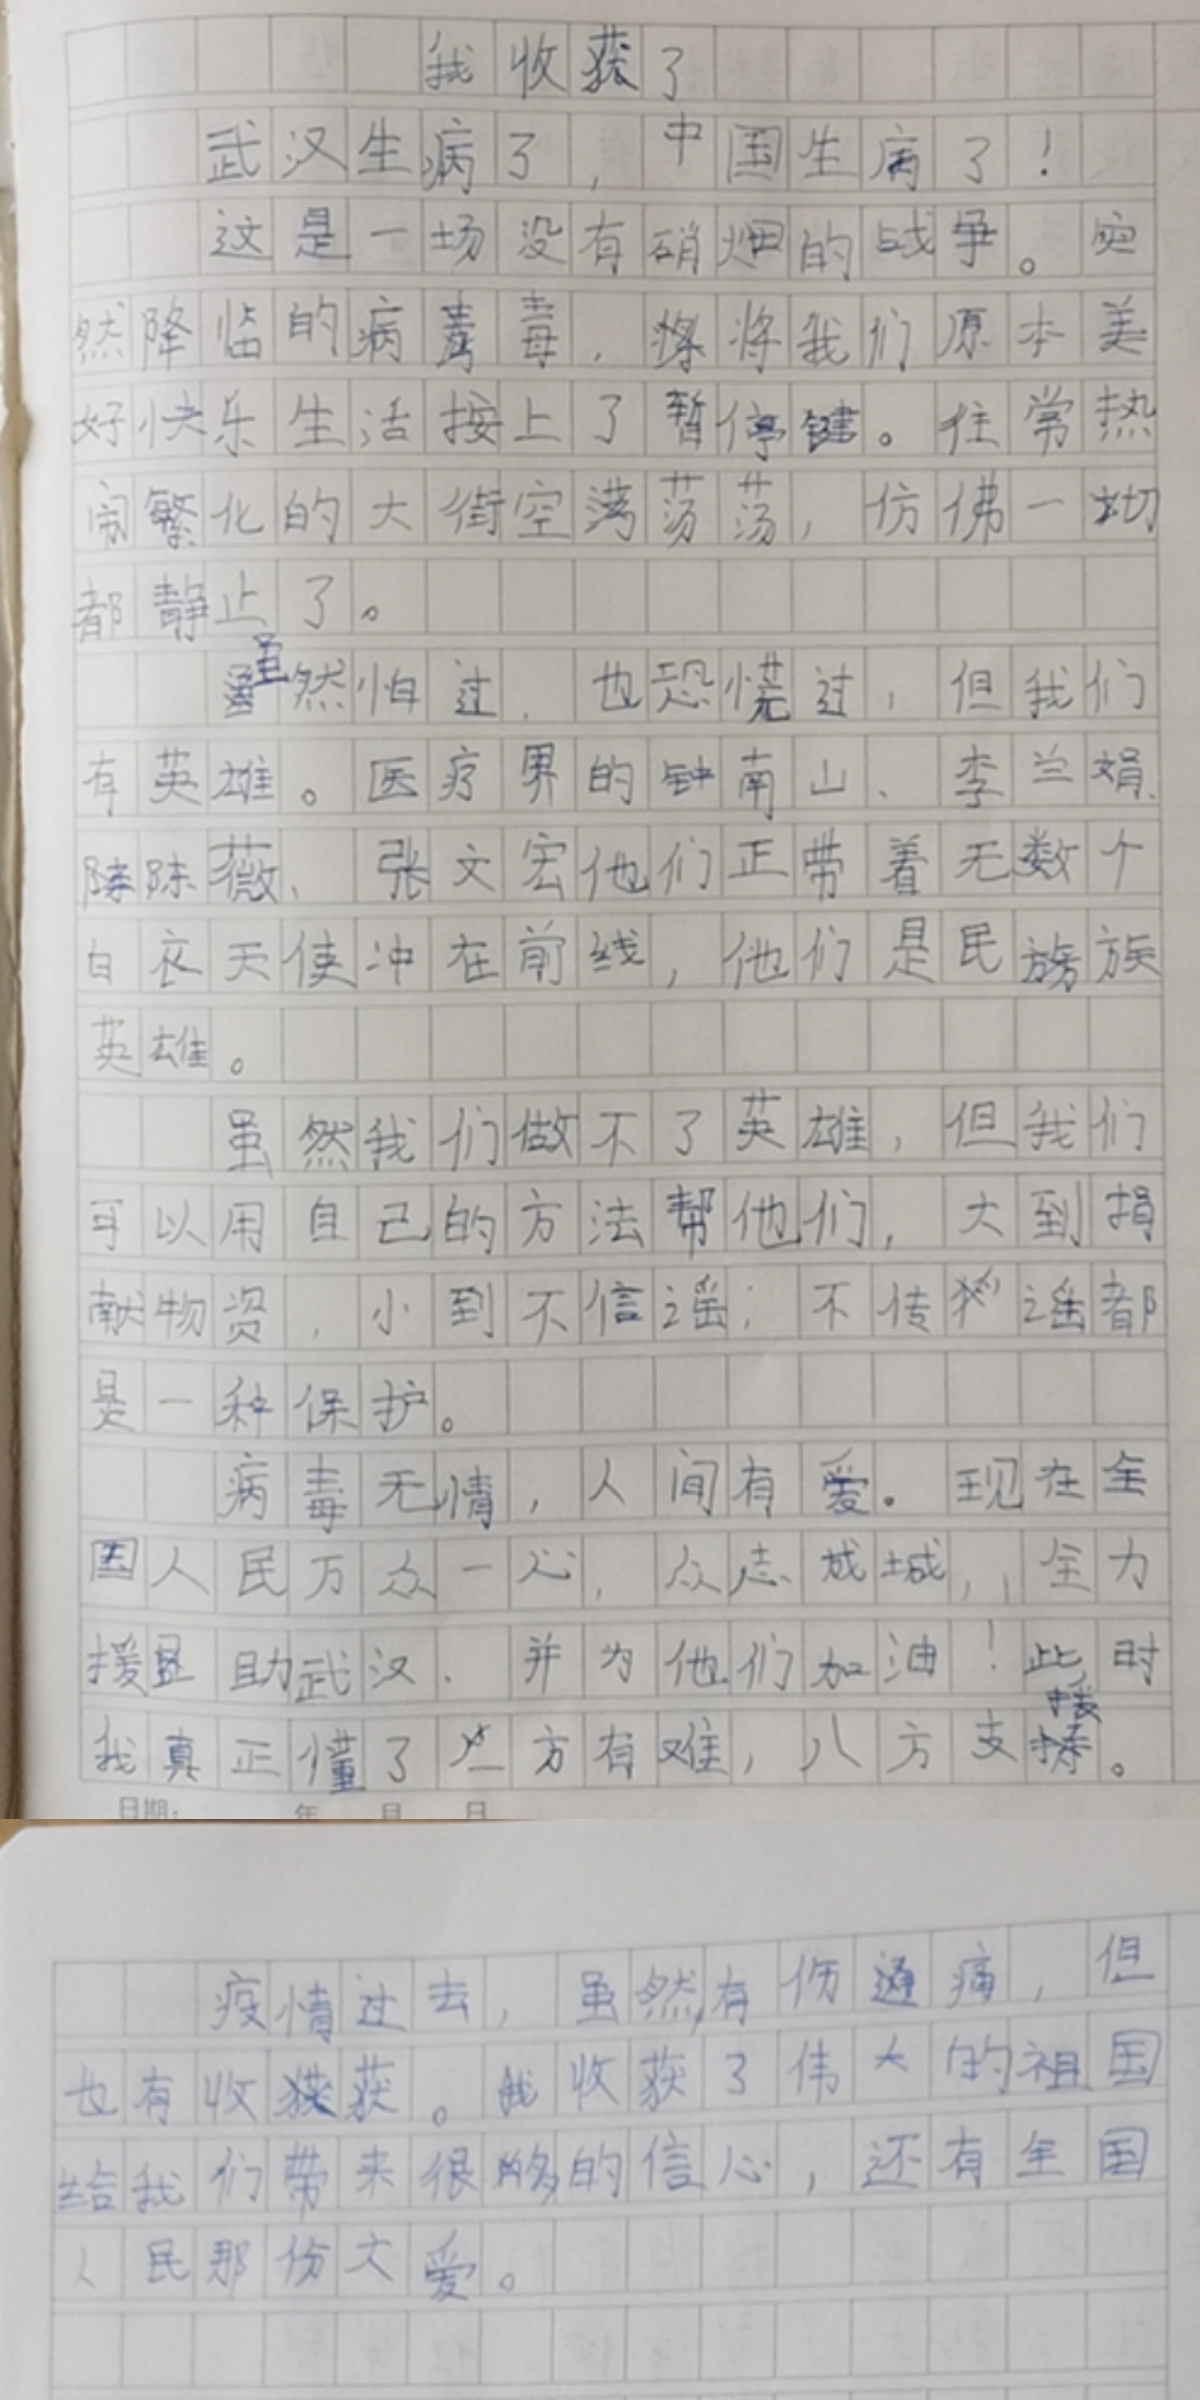 我收获了
武汉生病了，中国生病了！
这是一场没有硝烟的战争。突
然降临的病毒，将我们原本美
好快乐生活按上了暂停键。往常热
闹繁化的大街空荡荡，仿佛一切
都静止了。
虽然怕过，也恐慌过，但我们
有英雄。医疗界的钟南山、李兰娟、
陈薇、张文宏他们正带着无数个
白衣天使冲在前线，他们是民族
英雄。
虽然我们做不了英雄，但我们
可以用自己的方法帮他们，大到捐
献物资，小到不信谣；不传谣都
是一种保护。
病毒无情，人间有爱。现在全
国人民万众一心，众志成城，全力
援助武汉．并为他们加油！此时
我真正懂了一方有难，八方支援。
日期： 年 月 日
疫情过去，虽然有伤痛，但
也有收获。我收获了伟大的祖国
给我们带来很多的信心，还有全国
人民那份大爱。